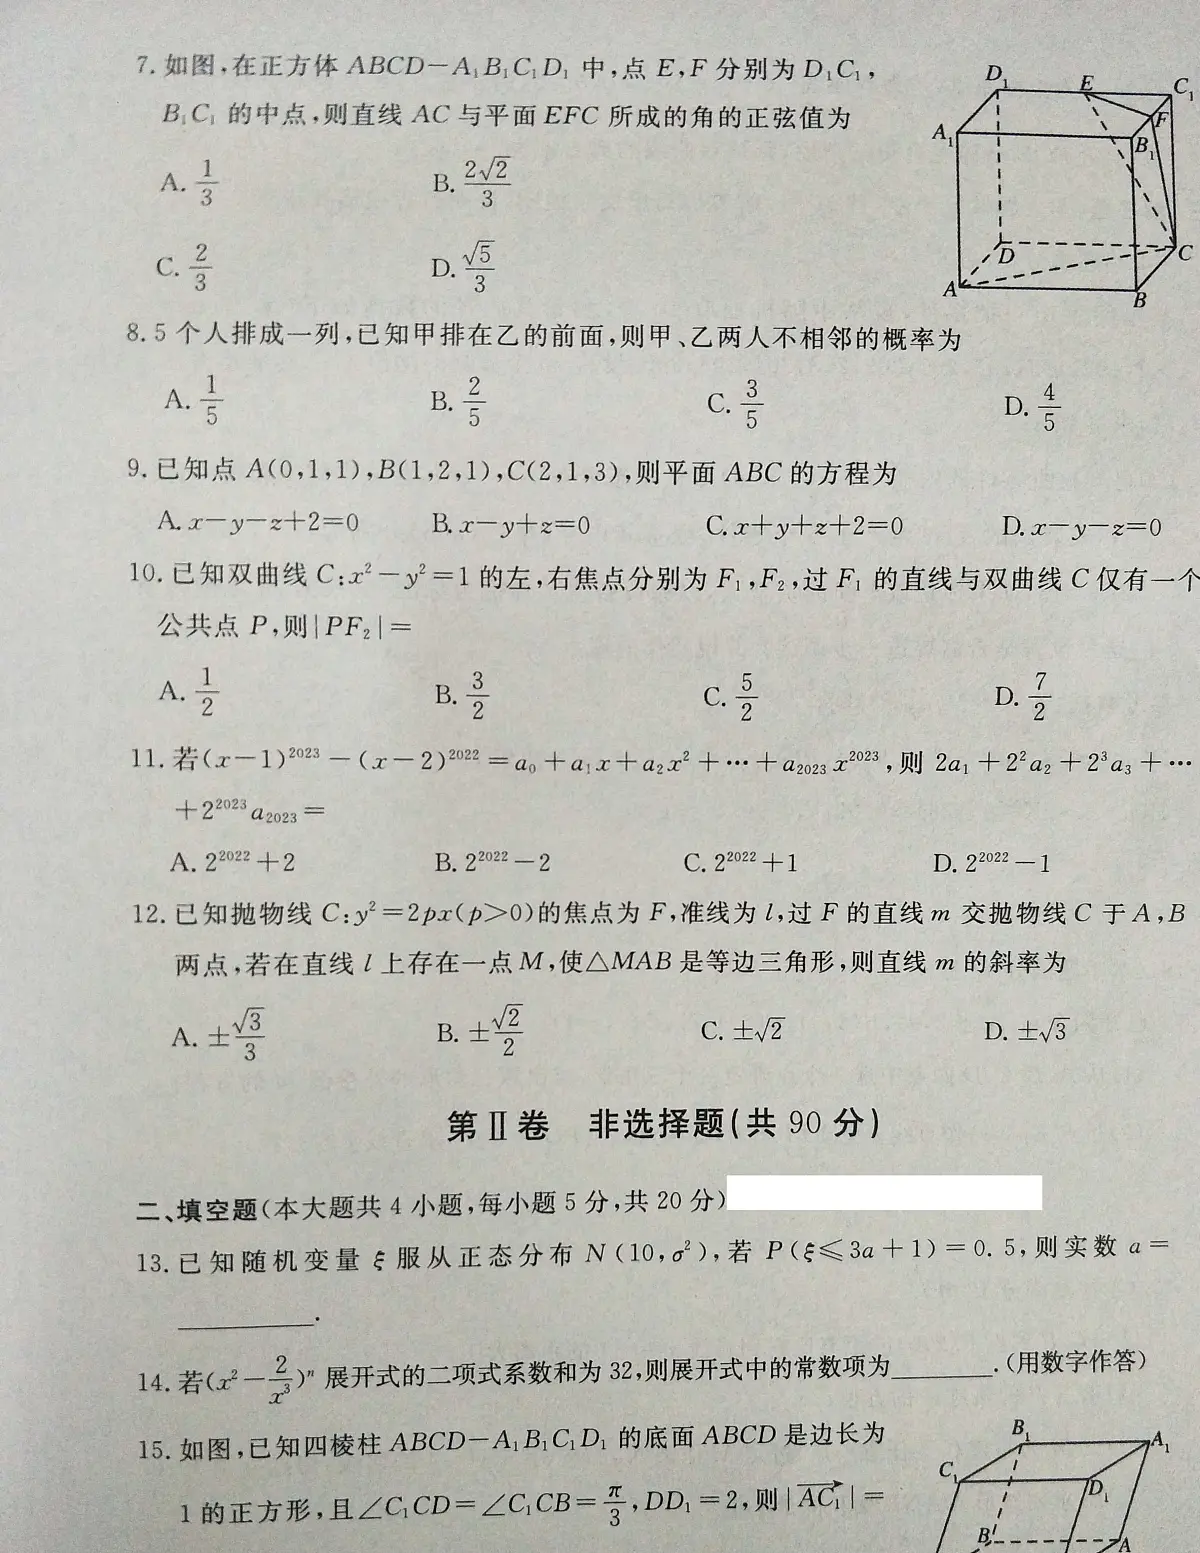 7. 如图,在正方体 ABCD-A₁B₁C₁D₁ 中,点 E,F 分别为 D₁C₁,
B₁C₁ 的中点,则直线 AC 与平面 EFC 所成的角的正弦值为
A. 1/3 B. 2√2/3
C. 2/3 D. √5/3
D₁ E C₁
A₁ B₁ F
D C
A B
8. 5 个人排成一列,已知甲排在乙的前面,则甲、乙两人不相邻的概率为
A. 1/5 B. 2/5 C. 3/5 D. 4/5
9. 已知点 A(0,1,1),B(1,2,1),C(2,1,3),则平面 ABC 的方程为
A. x-y-z+2=0 B. x-y+z=0 C. x+y+z+2=0 D. x-y-z=0
10. 已知双曲线 C:x²-y²=1 的左,右焦点分别为 F₁,F₂,过 F₁ 的直线与双曲线 C 仅有一个
公共点 P,则|PF₂|=
A. 1/2 B. 3/2 C. 5/2 D. 7/2
11. 若(x-1)²⁰²³-(x-2)²⁰²²=a₀+a₁x+a₂x²+…+a₂₀₂₃x²⁰²³,则 2a₁+2²a₂+2³a₃+…
+2²⁰²³a₂₀₂₃=
A. 2²⁰²²+2 B. 2²⁰²²-2 C. 2²⁰²²+1 D. 2²⁰²²-1
12. 已知抛物线 C:y²=2px(p>0)的焦点为 F,准线为 l,过 F 的直线 m 交抛物线 C 于 A,B
两点,若在直线 l 上存在一点 M,使△MAB 是等边三角形,则直线 m 的斜率为
A. ±√3/3 B. ±√2/2 C. ±√2 D. ±√3
第Ⅱ卷 非选择题(共 90 分)
二、填空题(本大题共 4 小题,每小题 5 分,共 20 分)
13. 已知随机变量 ξ 服从正态分布 N(10,σ²),若 P(ξ≤3a+1)=0.5,则实数 a=
______.
14. 若(x²-2/x³)ⁿ 展开式的二项式系数和为 32,则展开式中的常数项为______.(用数字作答)
15. 如图,已知四棱柱 ABCD-A₁B₁C₁D₁ 的底面 ABCD 是边长为
1 的正方形,且∠C₁CD=∠C₁CB=π/3,DD₁=2,则|AC₁→|=
B₁ A₁
C₁ D₁
B A